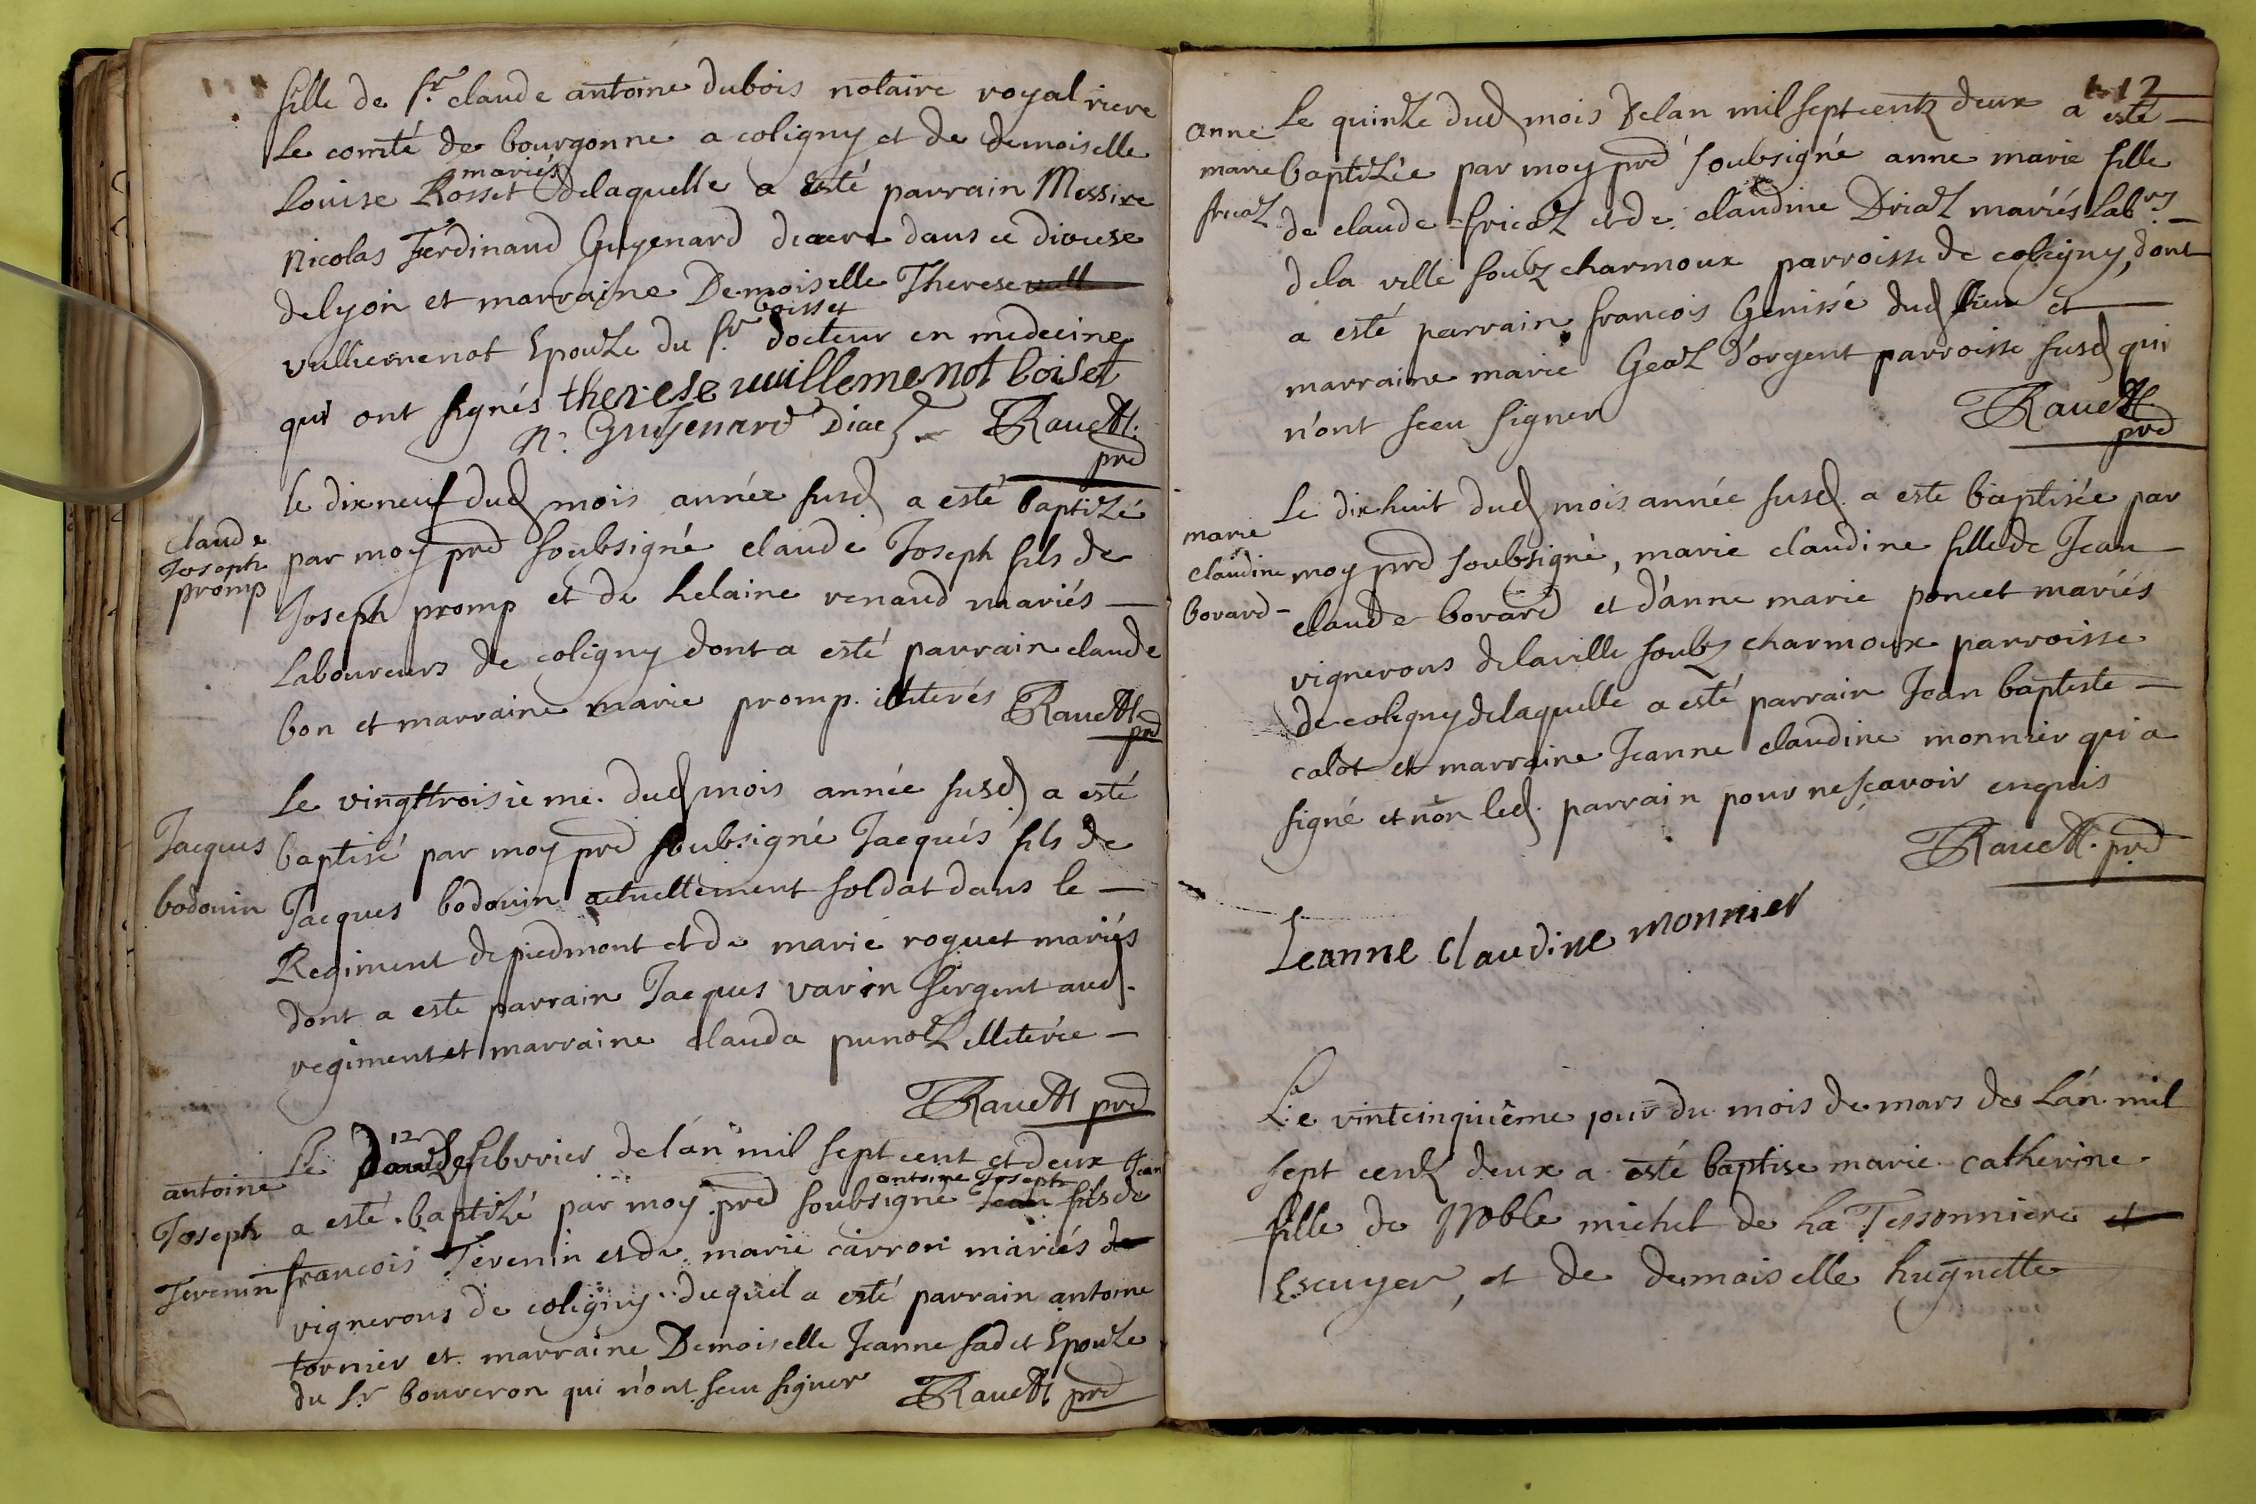 fille de Sr. claude antoine dubois notaire royal riere
le comté de bourgonne a coligny et de demoiselle
mariés
Louise Rosset delaquelle a esté parrain Messire
Nicolas Ferdinand Guyenard diacre dans ce diocese
delyon et marraine Demoiselle Therese
boisset
vulliemenot Epouze du Sr. docteur en medecine
qui ont signés therese vuillemenot boiset
n: Guyenard Diac Ravett.
prd
le dixneuf dud mois année susd a esté baptizé
claude
Joseph
promp
par moy prd soubsigné claude Joseph fils de
Joseph promp et de helaine renaud mariés —
Laboureurs de coligny dont a esté parrain claude
bon et marraine marie promp. illiterés Ravett
prd
Le vingttroisieme. dud mois année susd a esté
Jacques
bodouin
baptisé par moy prd soubsigné Jacques fils de
Jacques bodouin actuellement soldat dans le —
Regiment de piedmont et de marie roquet mariés
dont a este parrain Jacques varin sergent aud.
regiment et marraine clauda punoz illiterée —
Ravett prd
12
Le Douze febvrier de lan mil sept cent et deux Jean
antoine
Joseph
Terenin
antoine Joseph
a esté baptizé par moy prd soubsigné Jean fils de
francois Terenin et de marie carron mariés de
vignerons de coligny duquel a esté parrain antoine
tornier et marraine Demoiselle Jeanne sadet Epouze
du Sr bouveron qui n'ont sceu signer Ravett prd
12
anne
marie
fricoz
Le quinze dud mois delan mil septcentz deux a esté —
baptizée par moy prd soubsigné anne marie fille
de claude fricoz et de claudine Drioz mariés labrs —
dela ville soubz charmoux parroisse de coligny, dont
a esté parrain francois Genissé dud lieu et —
marraine marie Geoz d'orgent parroisse susd qui
n'ont sceu signer Ravett.
prd
marie
claudine
bovard —
Le dixhuit dud mois année susd. a este baptisée par
moy prd soubsigné, marie claudine fille de Jean —
claude bovard et d'anne marie poncet mariés
vignerons delaville soubz charmoux parroisse
de coligny delaquelle a esté parrain Jean baptiste —
calot et marraine Jeanne claudine monnier qui a
signé et non led. parrain pour ne scavoir enquis
Ravett. prd
Jeanne claudine monnier
Le vintcinquiême jour du mois de mars de Lán mil
sept centz deux a esté baptise marie catherine
fille de Noble michel de La Tessonniere et
Escuyer, et de demoiselle huguette